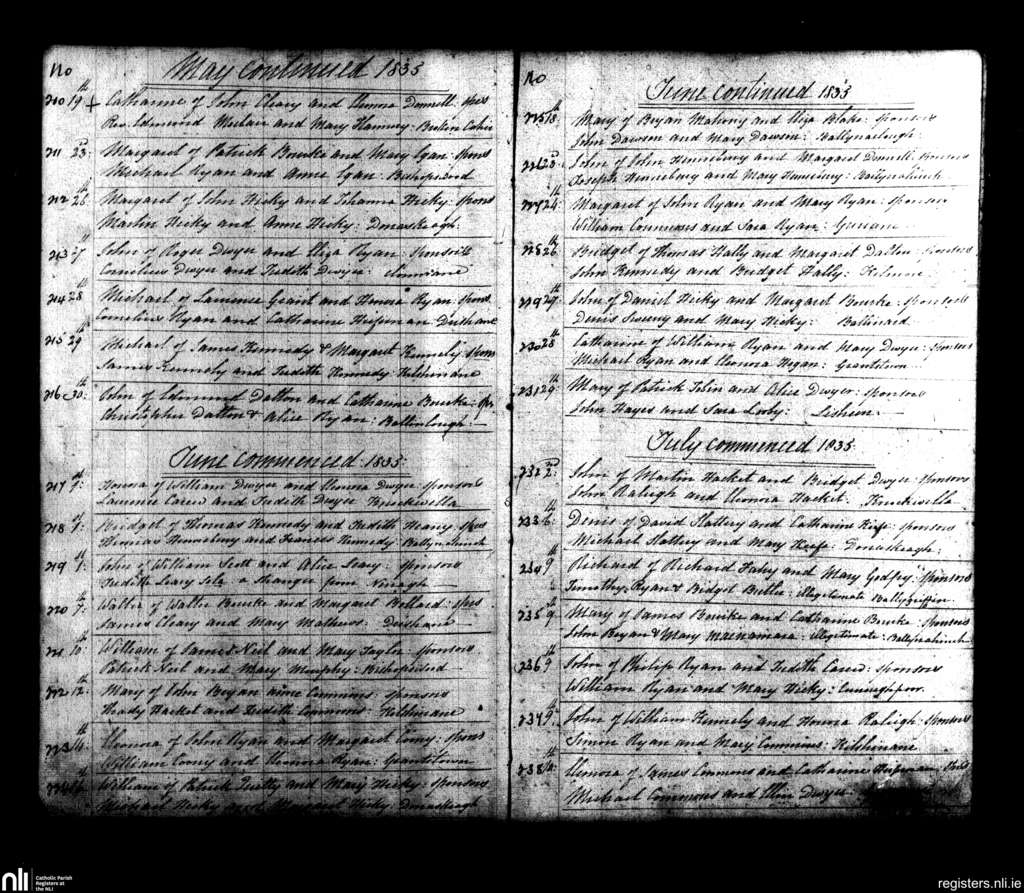 No
May continued 1835
210 19th + Catharine of John Cleary and Elenora Donnell: spos
Rev. Edmond Meehan and Mary
211 23rd Margaret of Patrick Bourke and Mary Egan: spons
Michael Ryan and Anne Egan: Bishopswood
212 26th Margaret of John Hicky and Johanna Hicky: spons
Martin Hicky and Anne Hicky: Donaskeagh
213 27th John of Roger Dwyer and Eliza Ryan: sponsors
Cornelius Dwyer and Judith Dwyer:
214 28th Michael of Laurence Grant and Honora Ryan: spons
Cornelius Ryan and Catharine Heffernan
215 29th Michael of James Kennedy & Margaret Kennely: spons
James Kennely and Judith Kennedy: Kilshinane
216 30th John of Edmund Dalton and Catharine Bourke: Sp.
Christopher Dalton & Alice Ryan: Ballinlough
June commenced 1835
217 1st Honora of William Dwyer and Elenora Dwyer sponsors
Laurence Carew and Judith Dwyer Knockavella
218 1st Bridget of Thomas Kennedy and Judith Heany: spos
Thomas Hennebury and Frances Kennedy: Ballynahinch
219 1st John of William Scott and Alice Leary: sponsors
Judith Leary Sola a stranger from Nenagh
220 7th Walter of Walter Bourke and Margaret: spos
James Cleary and Mary Mathews:
221 10th William of James Neil and Mary Taylor: sponsors
Patrick Neil and Mary Murphy: Bishopswood
222 12th Mary of John Bryan Anne Commins: sponsors
Hacket and Judith Commons: Kilshinane
223 14th Elenora of John Ryan and Margaret: spons
William and Elenora Ryan: Grantstown
224 16th William of Patrick and Mary Hicky: sponsors
Michael Hicky and Margaret Hicky Donaskeagh
No
June continued 1835
225 18th Mary of Bryan Mahony and Eliza Blake: sponsors
John Dawson and Mary Dawson:
226 23rd John of John Hennebury and Margaret Donnell: sponsors
Joseph Hennebury and Mary Hennebury: Ballynahinch
227 24th Margaret of John Ryan and Mary Ryan: sponsors
William Commons and Sara Ryan:
228 26th Bridget of Thomas Hally and Margaret Dalton: sponsors
John Kennedy and Bridget Hally:
229 27th John of Daniel Hicky and Margaret Bourke: sponsors
Denis Sweeny and Mary Hicky: Ballinard
230 28th Catharine of William Ryan and Mary Dwyer: Sponsors
Michael Ryan and Elenora Hogan: Grantstown
231 29th Mary of Patrick Tobin and Alice Dwyer: sponsors
John Hayes and Sara Looby: Lisheen
July commenced 1835
232 2nd John of Martin Hacket and Bridget Dwyer: Sponsors
John Raleigh and Elenora Hacket: Knockavella
233 6th Denis of David Slattery and Catharine Keefe: sponsors
Michael Slattery and Mary Keefe: Donaskeagh
234 9th Richard of Richard Fahey and Mary Godfry: sponsors
Timothy Ryan & Bridget Butler: illegitimate Ballygriffin
235 9th Mary of James Bourke and Catharine Bourke: Sponsors
John Bryan & Mary Macnamara: illegitimate: Ballynahinch
236 9th John of Philip Ryan and Judith Carew: sponsors
William Ryan and Mary Hicky:
237 9th John of William Kennely and Honora Raleigh: sponsors
Simon Ryan and Mary Commins: Kilshinane
238 14th Elenora of James Commons and Catharine Heffernan Spos
Michael Commons and Ellen Dwyer:
nli
Catholic Parish
Registers at
the NLI
registers.nli.ie